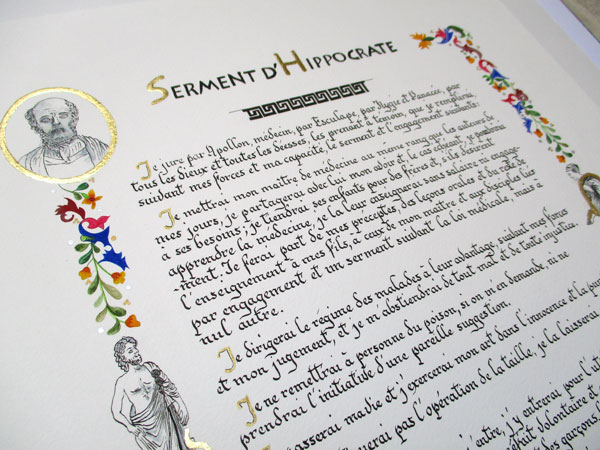 SERMENT D'HIPPOCRATE
Je jure par Apollon, médecin, par Esculape, par Hygie et Panacée, par
tous les dieux et toutes les déesses, les prenant à témoin, que je remplirai,
suivant mes forces et ma capacité, le serment et l'engagement suivants:
Je mettrai mon maître de médecine au même rang que les auteurs de
mes jours, je partagerai avec lui mon avoir et, le cas échéant, je pourvoirai
à ses besoins; je tiendrai ses enfants pour des frères et, s'ils désirent
apprendre la médecine, je la leur enseignerai sans salaire ni engage-
-ment. Je ferai part de mes préceptes, des leçons orales et du reste de
l'enseignement à mes fils, à ceux de mon maître et aux disciples liés
par engagement et un serment suivant la loi médicale, mais à
nul autre.
Je dirigerai le régime des malades à leur avantage, suivant mes forces
et mon jugement, et je m'abstiendrai de tout mal et de toute injustice.
Je ne remettrai à personne du poison, si on m'en demande, ni ne
prendrai l'initiative d'une pareille suggestion.
passerai ma vie et j'exercerai mon art dans l'innocence et la
pas l'opération de la taille, je la laisserai
j'entre, j'y entrerai pour l'
volontaire et
des garçons,